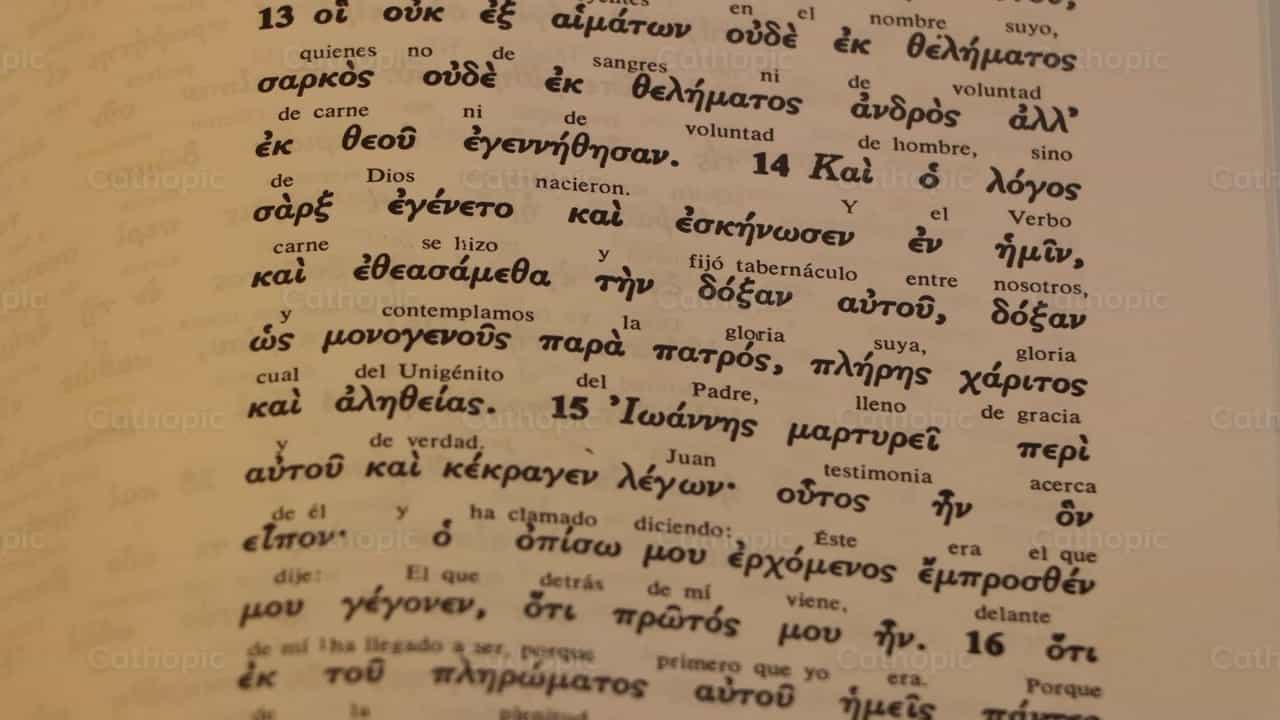 en el nombre suyo,
13 οἳ οὐκ ἐξ αἱμάτων οὐδὲ ἐκ θελήματος
quienes no de sangres ni de voluntad
σαρκὸς οὐδὲ ἐκ θελήματος ἀνδρὸς ἀλλ’
de carne ni de voluntad de hombre, sino
ἐκ θεοῦ ἐγεννήθησαν. 14 Καὶ ὁ λόγος
de Dios nacieron. Y el Verbo
σὰρξ ἐγένετο καὶ ἐσκήνωσεν ἐν ἡμῖν,
carne se hizo y fijó tabernáculo entre nosotros,
καὶ ἐθεασάμεθα τὴν δόξαν αὐτοῦ, δόξαν
y contemplamos la gloria suya, gloria
ὡς μονογενοῦς παρὰ πατρός, πλήρης χάριτος
cual del Unigénito del Padre, lleno de gracia
καὶ ἀληθείας. 15 Ἰωάννης μαρτυρεῖ περὶ
y de verdad. Juan testimonia acerca
αὐτοῦ καὶ κέκραγεν λέγων· οὗτος ἦν ὃν
de él y ha clamado diciendo: Éste era el que
εἶπον· ὁ ὀπίσω μου ἐρχόμενος ἔμπροσθέν
dije: El que detrás de mí viene, delante
μου γέγονεν, ὅτι πρῶτός μου ἦν. 16 ὅτι
de mí ha llegado a ser, porque primero que yo era. Porque
ἐκ τοῦ πληρώματος αὐτοῦ ἡμεῖς
de la plenitud
Cathopic